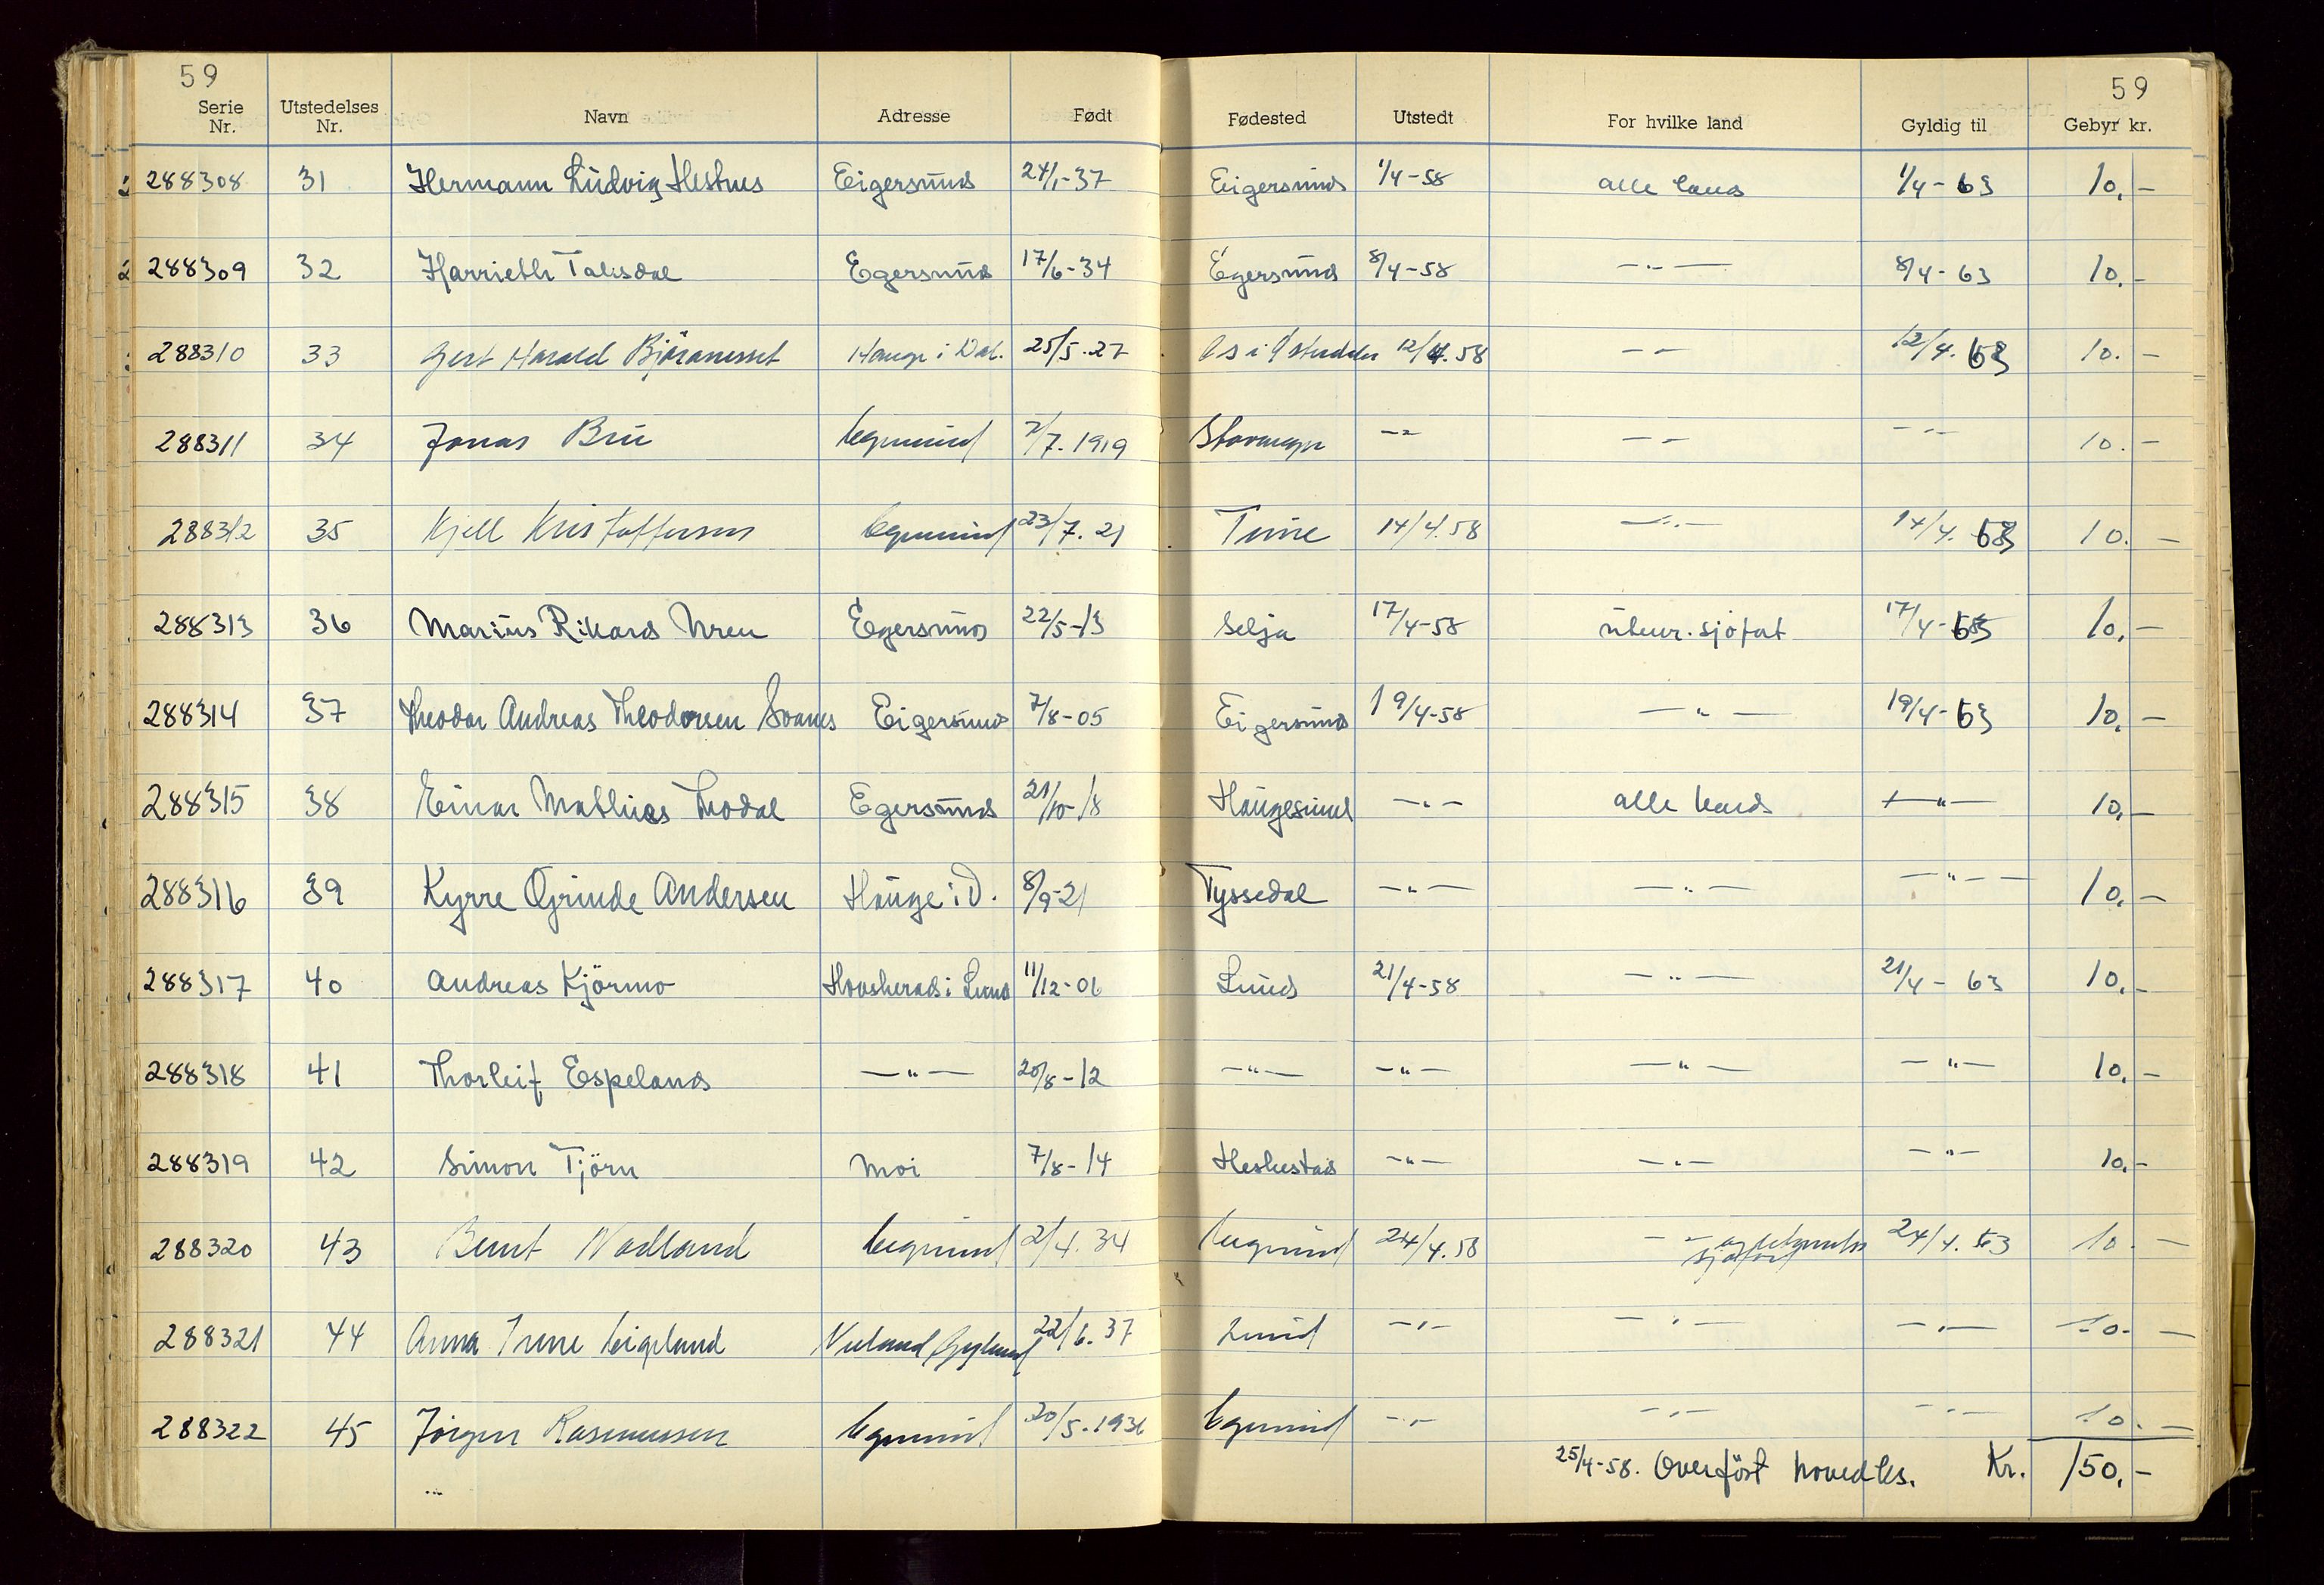 59 59
Serie Nr. Utstedelses Nr. Navn Adresse Født Fødested Utstedt For hvilke land Gyldig til Gebyr kr.
288308 31 Hermann Ludvig Hestnes Eigersund 24/1-37 Eigersund 1/4-58 alle land 1/4-63 10,-
288309 32 Harrieth Taksdal Egersund 17/6-34 Egersund 8/4-58 -"- 8/4-63 10,-
288310 33 Gert Harald Bjåranesset Hauge i Dal. 25/5.27 Ås i 12/4.58 -"- 12/4.63 10.-
288311 34 Jonas Bru Egersund 2/7.1919 Stavanger -"- -"- -"- 10.-
288312 35 Kjell Kristoffersen Egersund 23/7.21 Time 14/4.58 -"- 14/4.63 10.-
288313 36 Marius Rikard Egersund 22/5-13 Selja 17/4-58 utenr. sjøfart 17/4-63 10,-
288314 37 Theodor Andreas Theodorsen Svanes Eigersund 7/8-05 Eigersund 19/4-58 -"- 19/4-63 10,-
288315 38 Einar Mathias Egersund 21/10-18 Haugesund -"- alle lands -"- 10,-
288316 39 Kyrre Grinde Andersen Hauge i D. 8/9-21 Tyssedal -"- -"- -"- 10,-
288317 40 Andreas Kjörmo Hovsherad i Lund 11/12-06 Lund 21/4-58 -"- 21/4-63 10,-
288318 41 Thorleif Espeland -"- 20/8-12 -"- -"- -"- -"- 10,-
288319 42 Simon Tjörn Moi 7/8-14 Heskestad -"- -"- -"- 10,-
288320 43 Bernt Nodland Egersund 2/4.34 Egersund 24/4.58 -"- og utenriks sjøfart 24/4.63 10.-
288321 44 Anna Irene Eigeland Gyland 22/6.37 Lund -"- -"- -"- 10.-
288322 45 Jörgen Rasmussen Egersund 20/5.1936 Egersund -"- -"- -"- 10.-
25/4-58. Overfört hovedks. Kr. 150,-